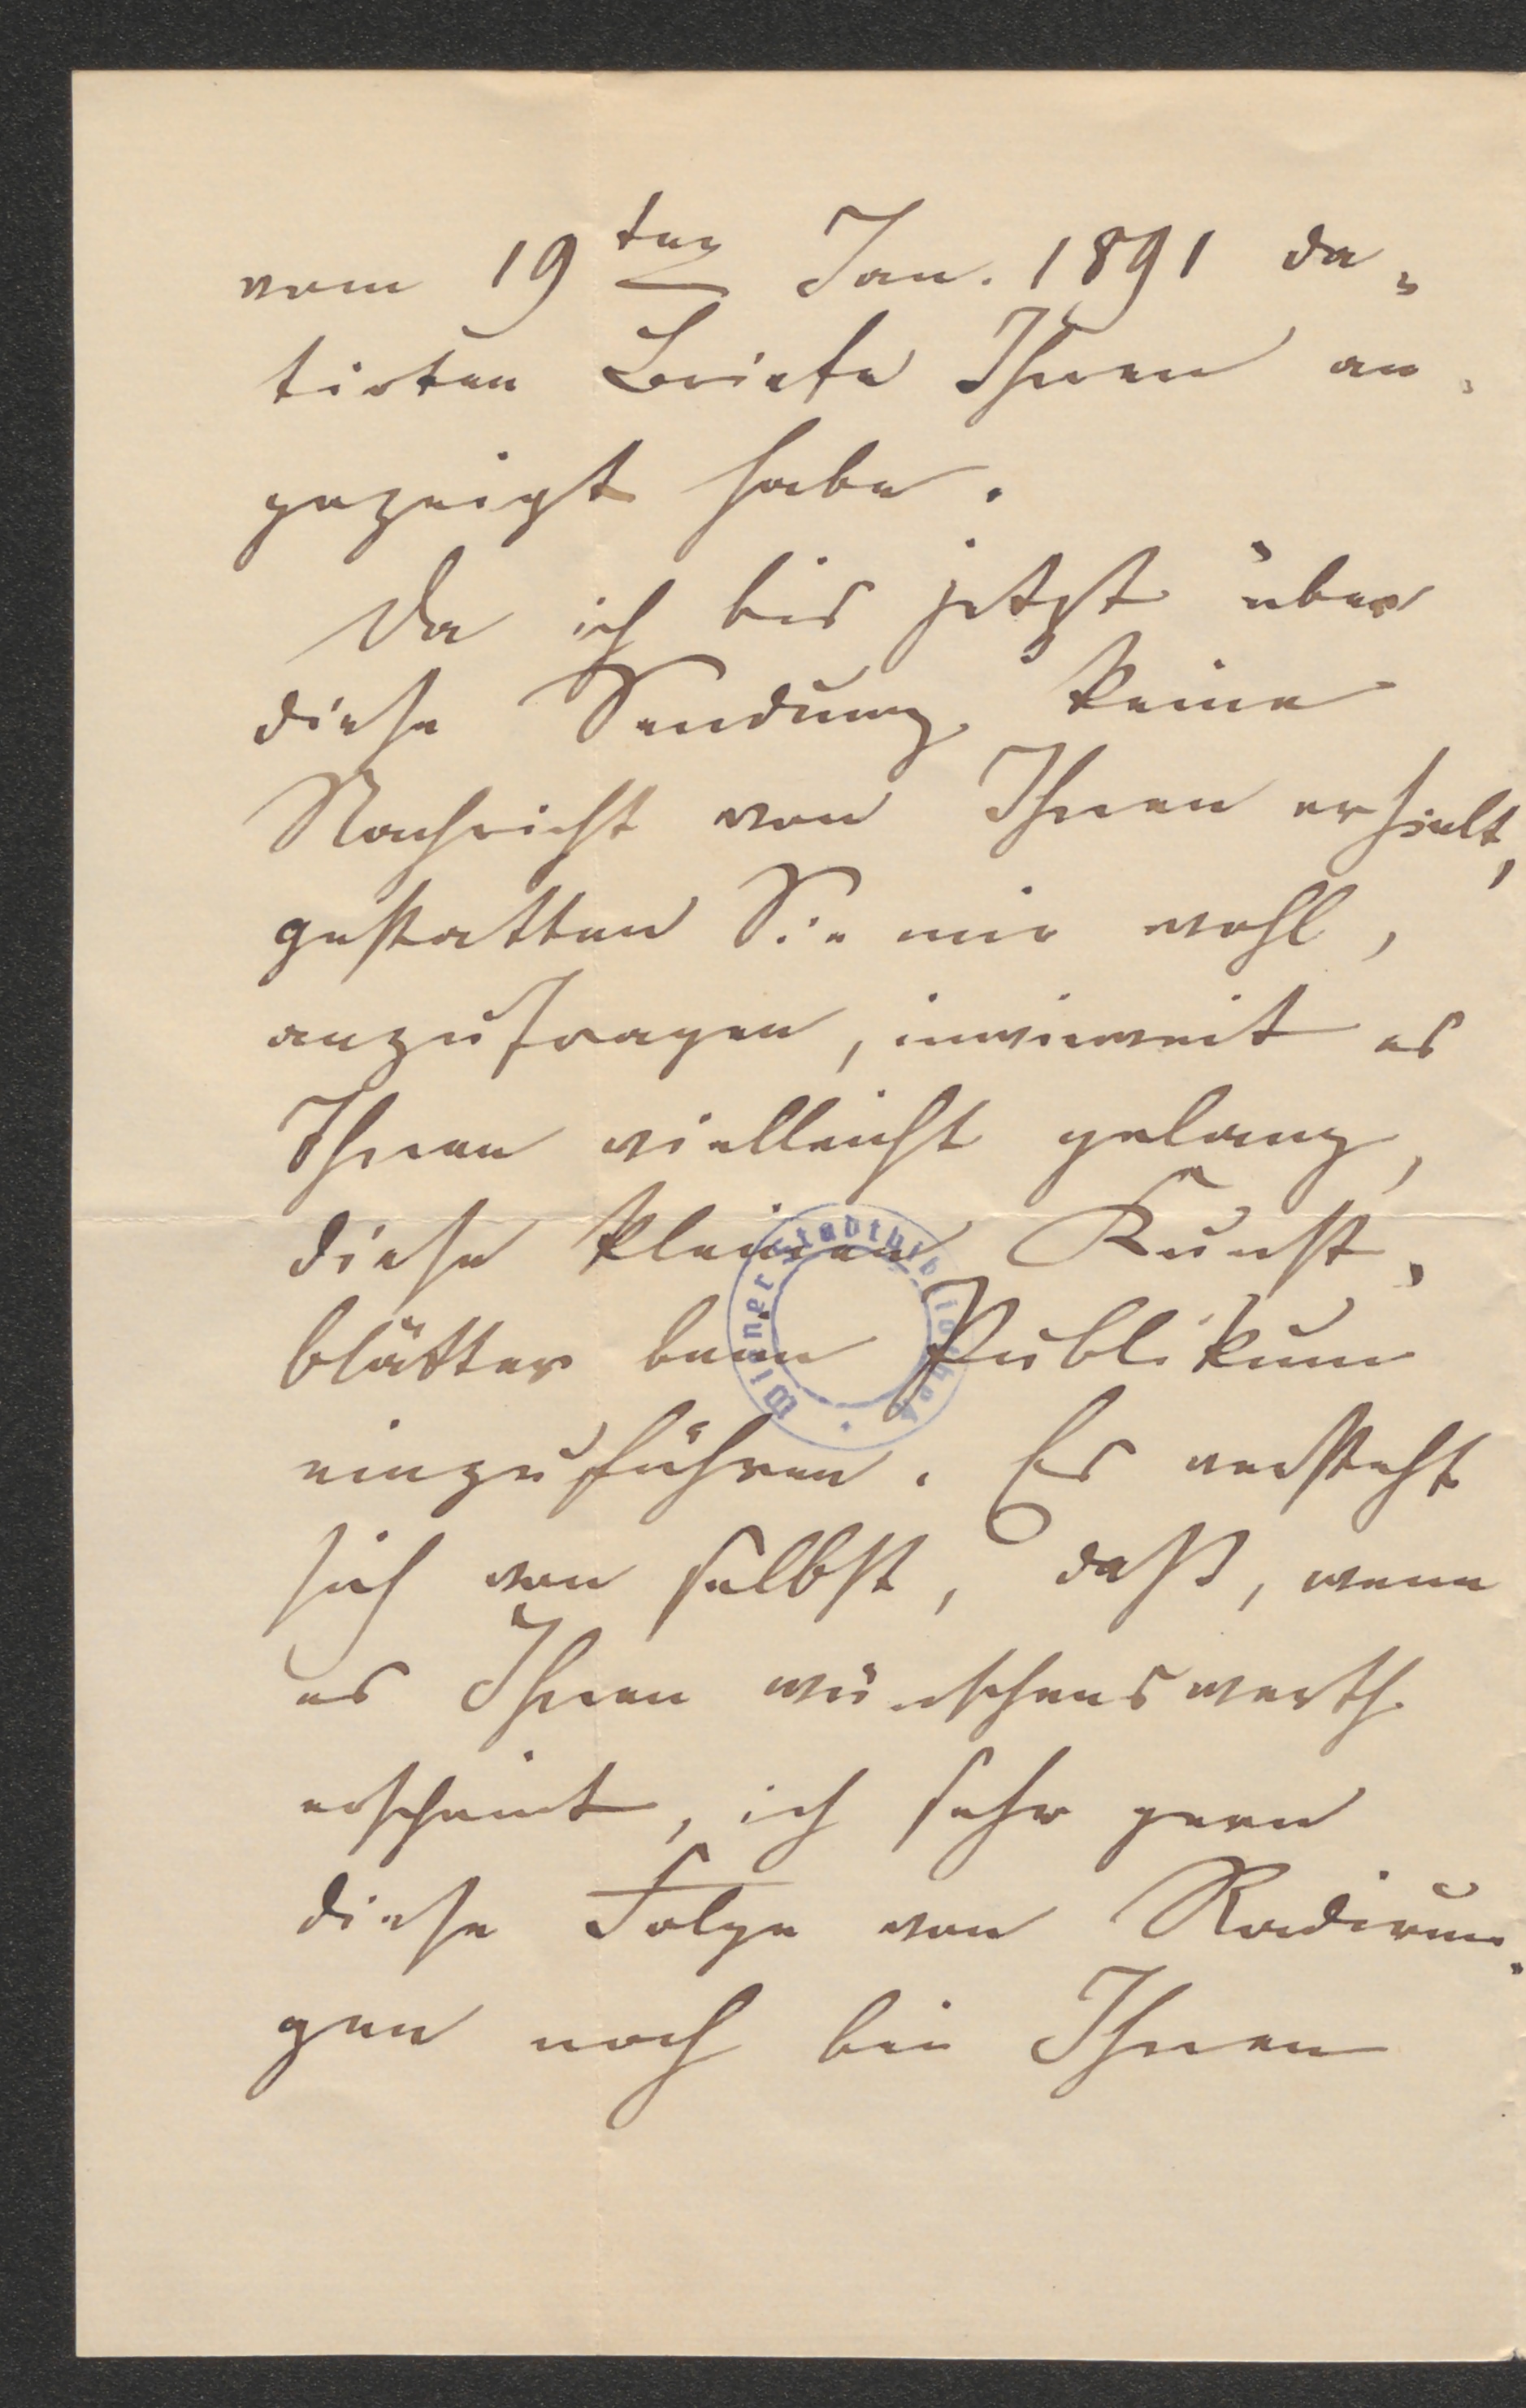 vom 19ten Jan. 1891 da-
tirten Briefe Ihnen an-
gezeigt habe.
Da ich bis jetzt über
diese Sendung keine
Nachricht von Ihnen erhielt,
gestatten Sie mir wohl,
anzufragen, inwieweit es
Ihnen vielleicht gelang,
diese kleinen Kunst-
blätter beim Publikum
einzuführen. Es versteht
sich von selbst, daß, wenn
es Ihnen wünschenswerth
erscheint, ich sehr gern
diese Folge von Radirun-
gen noch bei Ihnen
Wiener Stadtbibliothek